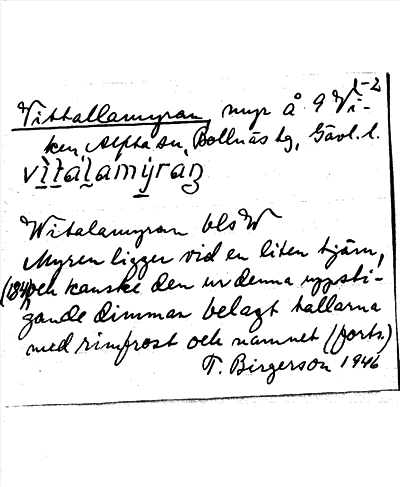 1-2
Vittallamyran, myr å 9 Vi-
ken, Alfta sn, Bollnäs tg, Gävl. l.
vìtàlamýraṉ
Witalamyran bls W
Myren ligger vid en liten tjärn,
(1840) och kanske den ur denna uppsti-
gande dimman belagt tallarna
med rimfrost och namnet (forts.)
T. Birgerson 1946